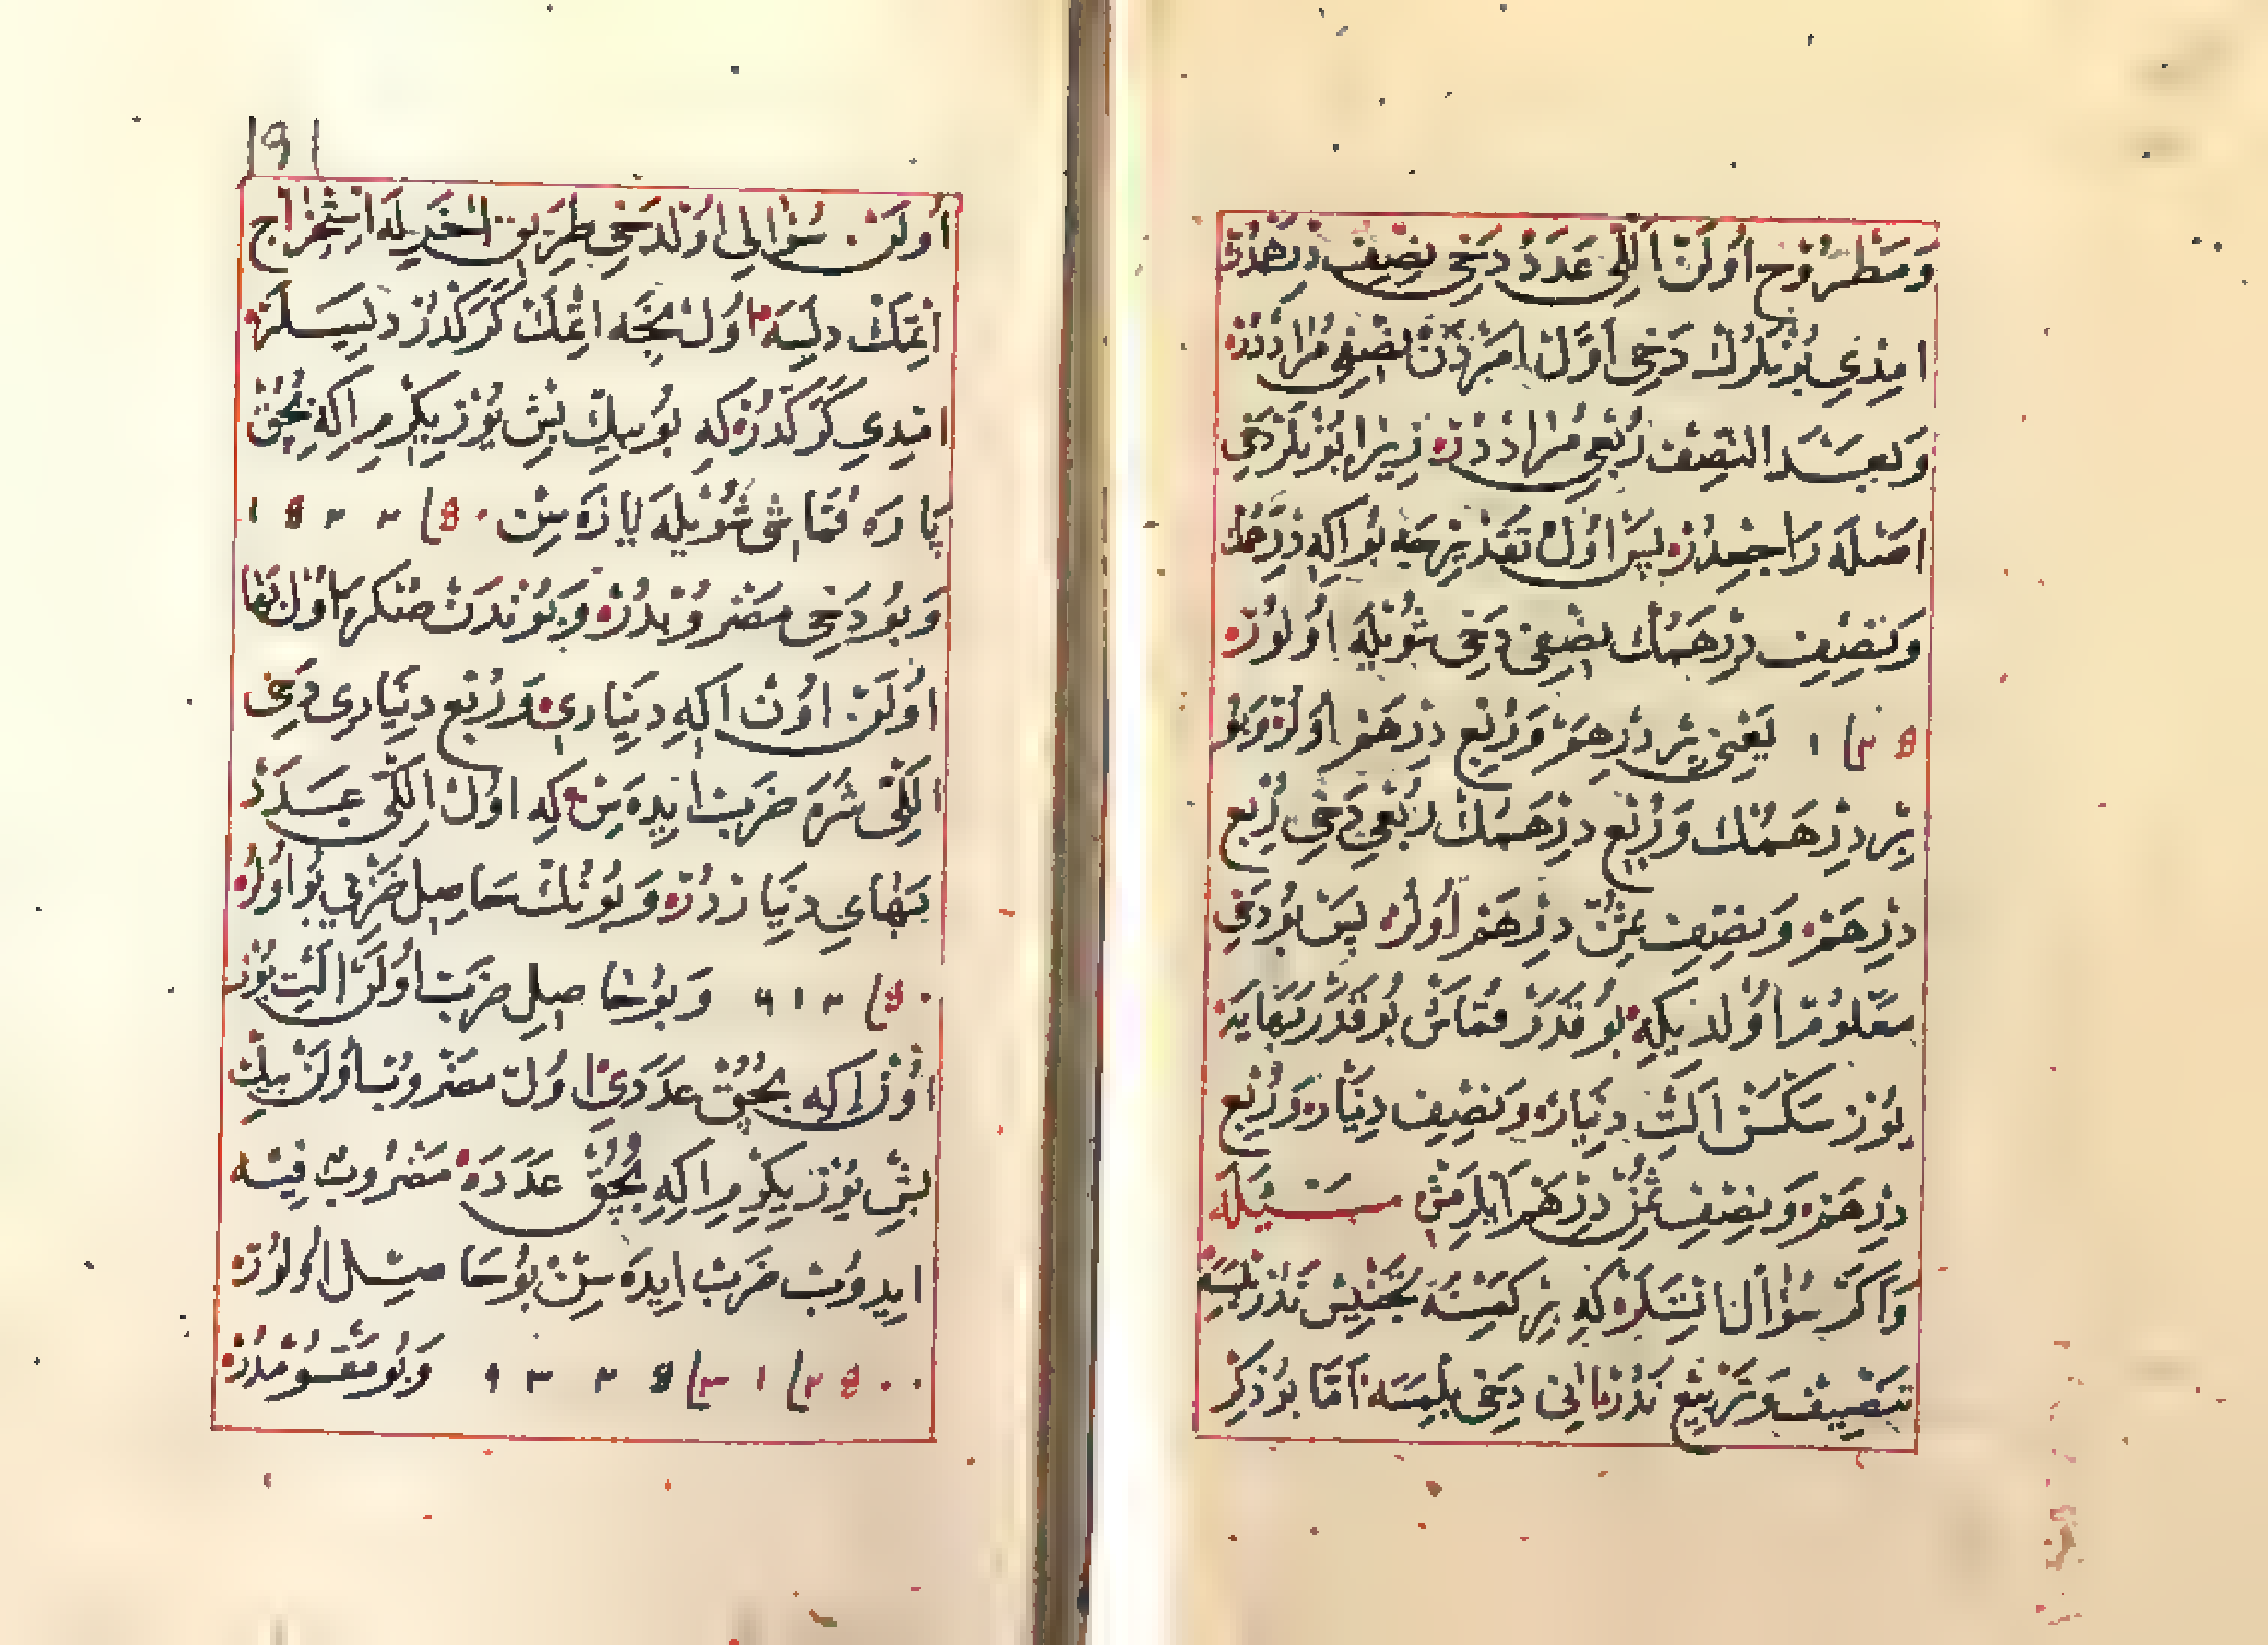 وَمَطْرُوحْ اُولَنْ اَللِي عَدَدُ دَخِي نِصْفِ دِرْهَمْدُرْ
امِدِي بُونْلَرُكْ دَخِي اَوَّلْ نِصْفِي مُرَادْدُرْ
وَبَعْدَ التَّنْصِيف رُبْعِي مُرَادْدُرْ زِيرَا بُونْلَرْ دَخِي
اَصْلَه رَاجِعْدُرْ پَسْ اَوَّلْ تَقْدِيرْجَه بُو اِكِي دِرْهَمُكْ
وَنِصْفِ دِرْهَمُكْ نِصْفِي دَخِي شُويْلَه اُولُورْ
يَعْنِي بِرْ دِرْهَمْ وَرُبْعِ دِرْهَمْ اُولُرْ وَبُو
بِرْ دِرْهَمُنْكْ وَرُبْعِ دِرْهَمُكْ رُبْعِي دَخِي رُبْعِ
دِرْهَمْ وَنِصْفِ ثُمْنِ دِرْهَمْ اُولُرْ پَسْ بُو دَخِي
مَعْلُومْ اُولْدِيكِه بُو قَدَرْ قُمَاشْ بُو قَدَرْ بَهَايَه
يُوزْ سَكْسَنْ اَلْتِي دِينَارْ وَنِصْفِ دِينَارْ وَرُبْعِ
دِرْهَمْ وَنِصْفِ ثُمْنِ دِرْهَمْ ايلَرمِشْ مَسْئَلَه
وَاكَرْ سُؤَالْ اُولُنْسَه كِه بِرْ كِمْسَه تَجْنِيسْ نَدُرْ بِلْمَسَه
تَنْصِيفْ وَتَرْبِيعْ نَدُرْ اَنِي دَخِي بِلْمَسَه اَمَّا بُو ذِكْرْ
١٩١
اُولَنْ سُؤَالِي اُولْ دَخِي طَرِيقِ اَخَرِلَه اِسْتِخْرَاجْ
اِتْمَكْ دِلَسَه اُولْ نِجَه اِتْمَكْ كَرَكْدُرْ دِيسَلَرْ
امِدِي كَرَكْدُرْ كِه بُو بِيكْ بِشْ يُوزْ يِكِرْمِ اِكِي بُچُقْ
پَارَه قُمَاشِي شُويْلَه يَازَه سِنْ ١٥٢٢
وَبُو دَخِي مَضْرُوبْدُرْ وَبُونْدَنْ صُكْرَه اُولْ بَهَا
اُولَنْ اُونْ اِكِي دِينَارِي وَرُبْعِ دِينَارِي دَخِي
اَللِي شَرَه ضَرْبْ ايدَه سِنْ كِه اُولْ اَللِي عَدَدْ
بَهَايِ دِينَارْدُرْ وَبُونُكْ حَاصِلِ ضَرْبِي بُو اُولُرْ
٦١٢ وَبُو حَاصِلِ ضَرْبْ اُولَنْ اَلْتِي يُوزْ
اُونْ اِكِي بُچُقْ عَدَدِي اُولْ مَضْرُوبْ اُولَنْ بِيكْ
بِشْ يُوزْ يِكِرْمِ اِكِي بُچُقْ عَدَدَه مَضْرُوبْ فِيهْ
ايدُوبْ ضَرْبْ ايدَه سِنْ بُو حَاصِلْ اُولُورْ
وَبُو مَقْسُومْدُرْ